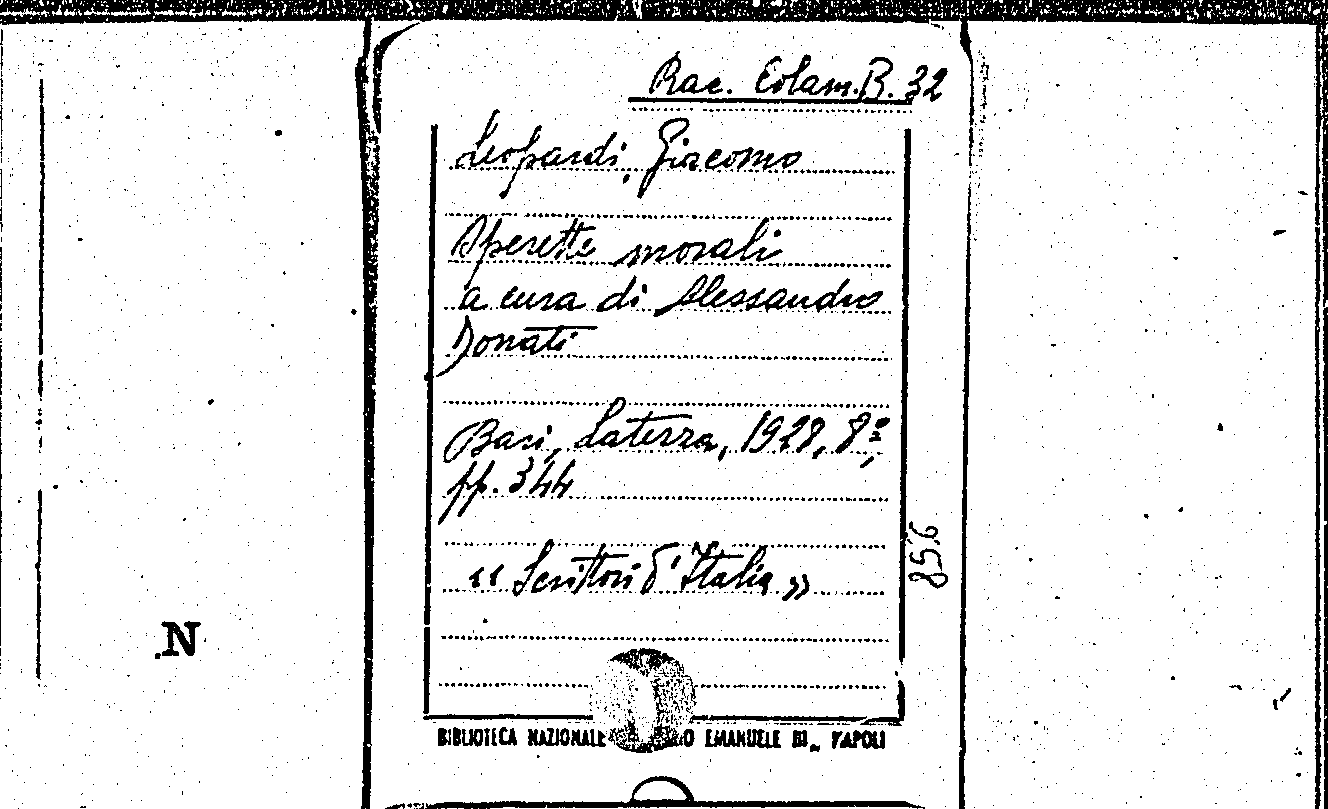 Rac. Colam. B. 32
Leopardi, Giacomo
Operette morali
a cura di Alessandro
Donati
Bari, Laterza, 1928, 8º,
pp. 344
"Scrittori d'Italia"
856
N
BIBLIOTECA NAZIONALE EMANUELE III - NAPOLI